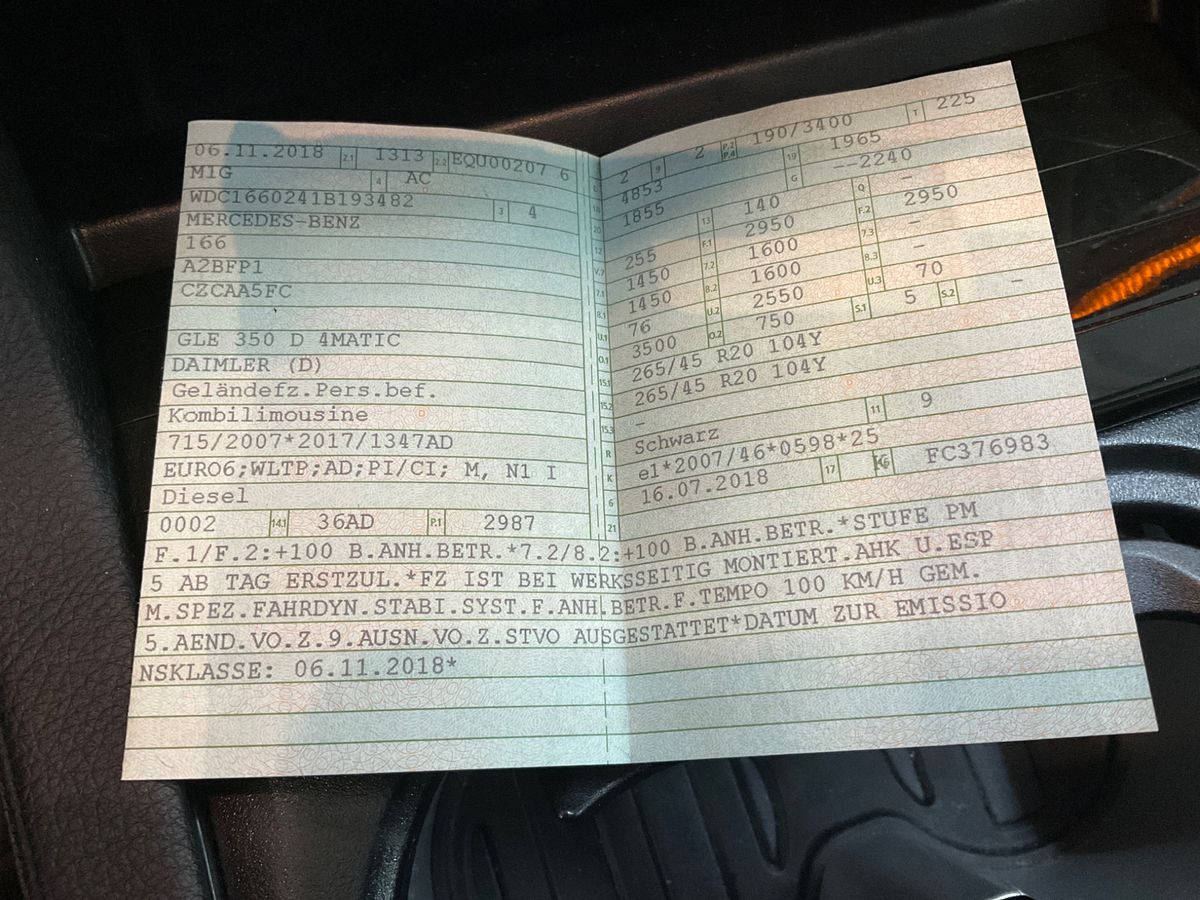 06.11.2018 2.1 1313 2.2 EQU00207 6
M1G 4 AC
WDC1660241B193482 3 4
MERCEDES-BENZ
166
A2BFP1
CZCAA5FC
GLE 350 D 4MATIC
DAIMLER (D)
Geländefz.Pers.bef.
Kombilimousine
715/2007*2017/1347AD
EURO6;WLTP;AD;PI/CI; M, N1 I
Diesel
0002 14.1 36AD P.1 2987
L 2 9 2 P.2 P.4 190/3400 T 225
18 4853 19 1965
20 1855 G --2240
12 13 140 Q -
V.7 255 F.1 2950 F.2 2950
7.1 1450 7.2 1600 7.3 -
8.1 1450 8.2 1600 8.3 -
U.1 76 U.2 2550 U.3 70
O.1 3500 O.2 750 S.1 5 S.2 -
15.1 265/45 R20 104Y
15.2 265/45 R20 104Y
15.3 -
R Schwarz 11 9
K e1*2007/46*0598*25
6 16.07.2018 17 FC376983
21
F.1/F.2:+100 B.ANH.BETR.*7.2/8.2:+100 B.ANH.BETR.*STUFE PM
5 AB TAG ERSTZUL.*FZ IST BEI WERKSSEITIG MONTIERT.AHK U.ESP
M.SPEZ.FAHRDYN.STABI.SYST.F.ANH.BETR.F.TEMPO 100 KM/H GEM.
5.AEND.VO.Z.9.AUSN.VO.Z.STVO AUSGESTATTET*DATUM ZUR EMISSIO
NSKLASSE: 06.11.2018*